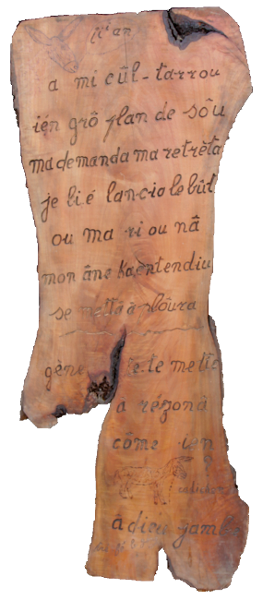 a mi cûl-tarrou
ièn grô flan de sôu
ma demanda ma retrèta
je li é lancio le bût
ou ma ri ou nâ
mon âne ka entendiu
se â loura
gène te le mette
a réponâ
côme ien
â dire jam